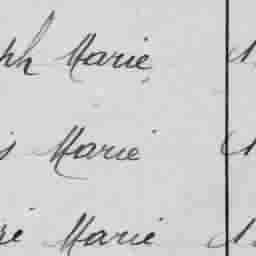 ph Marie
s Marie
ré Marie